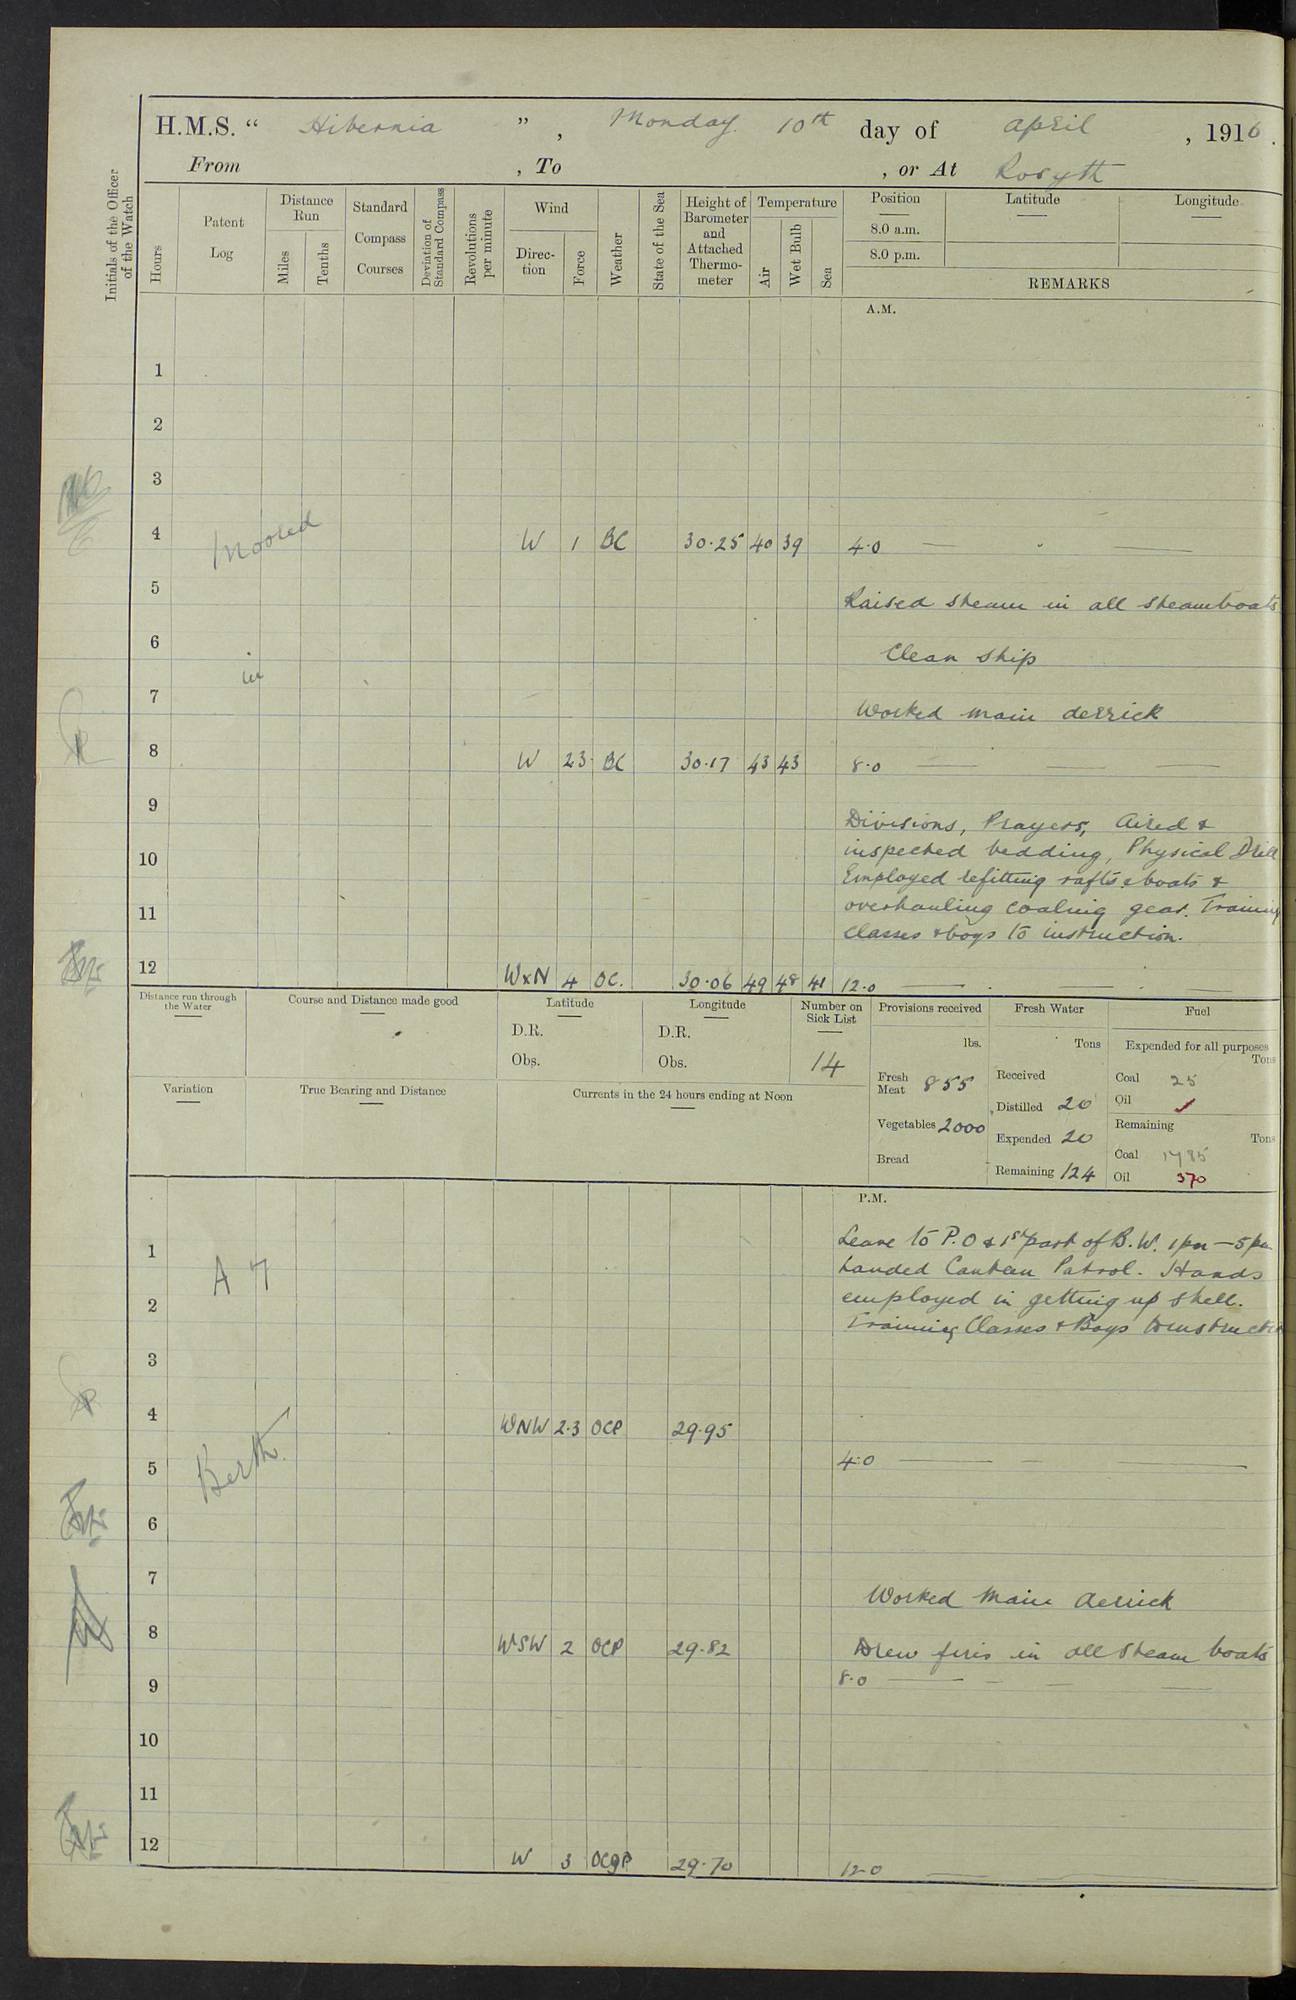 H.M.S. “ Hibernia ” , Monday 10th day of April , 1916.
From , To , or At Rosyth
Initials of the Officer of the Watch
Hours
Patent Log
Distance Run
Miles
Tenths
Standard Compass Courses
Deviation of Standard Compass
Revolutions per minute
Wind
Direction
Force
Weather
State of the Sea
Height of Barometer and Attached Thermometer
Temperature
Air
Wet Bulb
Sea
Position Latitude Longitude
8.0 a.m.
8.0 p.m.
REMARKS
A.M.
1
2
3
4 Moored W 1 BC 30.25 40 39 4.0
5
Raised steam in all steamboats
6
Clean Ship
in
7
Worked main derrick
8 W 23 BC 30.17 43 43 8.0
9
Divisions, Prayers, Aired &
10 inspected bedding, Physical Drill
Employed refitting rafts & boats &
11 overhauling coaling gear. Training
Classes & boys to instruction.
12 WxN 4 OC. 30.06 49 48 41 12.0
Distance run through the Water
Course and Distance made good
Latitude
D.R.
Obs.
Longitude
D.R.
Obs.
Number on Sick List
14
Provisions received
lbs.
Fresh Meat 855
Vegetables 2000
Bread
Fresh Water
Tons
Received
Distilled 20
Expended 20
Remaining 124
Fuel
Expended for all purposes
Tons
Coal 25
Oil
Remaining
Tons
Coal 1785
Oil 370
Variation
True Bearing and Distance
Currents in the 24 hours ending at Noon
P.M.
1 Leave to P.O & 1st part of B.W. 1pm — 5pm
A 7 Landed Canteen Patrol. Hands
2 employed in getting up shell.
Training Classes & Boys to instruction
3
4 WNW 2.3 OCP 29.95
Berth.
5 4.0
6
7
Worked Main derrick
8 WSW 2 OCP 29.82 Drew fires in all Steam boats
9 8.0
10
11
12 W 3 OCgP 29.70 12.0